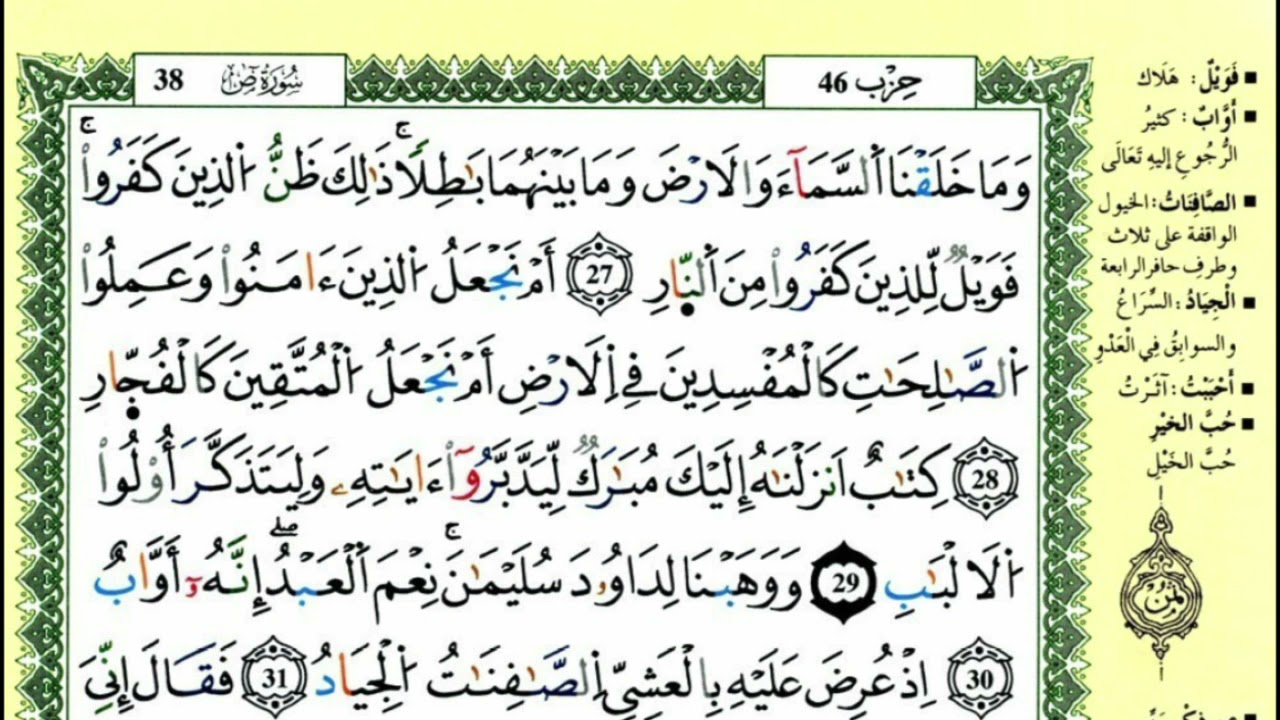 حِزْب 46
سُورَةُ صٓ 38
وَمَا خَلَقْنَا اَ۬لسَّمَآءَ وَالَارْضَ وَمَا بَيْنَهُمَا بَٰطِلاٗۖ ذَٰلِكَ ظَنُّ اُ۬لذِينَ كَفَرُواْۖ
فَوَيْلٞ لِّلذِينَ كَفَرُواْ مِنَ اَ۬لنّ۪ارِ 27 أَمْ نَجْعَلُ اُ۬لذِينَ ءَامَنُواْ وَعَمِلُواْ
اُ۬لصَّٰلِحَٰتِ كَالْمُفْسِدِينَ فِے اِ۬لَارْضِ أَمْ نَجْعَلُ اُ۬لْمُتَّقِينَ كَالْفُجّ۪ارِ
28 كِتَٰبٌ اَنزَلْنَٰهُ إِلَيْكَ مُبَٰرَكٞ لِّيَدَّبَّرُوٓاْ ءَايَٰتِهِۦ وَلِيَتَذَكَّرَ أُوْلُواْ
اُ۬لَالْبَٰبِ 29 وَوَهَبْنَا لِدَاوُۥدَ سُلَيْمَٰنَۖ نِعْمَ اَ۬لْعَبْدُۖ إِنَّهُۥٓ أَوَّابٌ
30 اِذْ عُرِضَ عَلَيْهِ بِالْعَشِيِّ اِ۬لصَّٰفِنَٰتُ اُ۬لْجِيَادُ 31 فَقَالَ إِنِّيَ
▪ فَوَيْلٌ: هَلَاك
▪ أَوَّابٌ: كثيرُ
الرُّجُوعِ إليهِ تَعَالَى
▪ الصَّافِنَاتُ: الخيول
الواقفة على ثلاث
وطرف حافر الرابعة
▪ الْجِيَادُ: السِّرَاعُ
والسوابِقُ فِي الْعَدْوِ
▪ أَحْبَبْتُ: آثَرْتُ
▪ حُبَّ الخَيْرِ
حُبَّ الخَيْل
ثُمُن